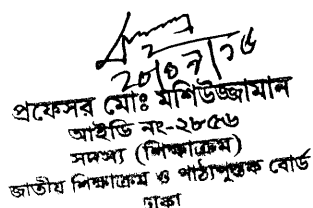 ২০/০৭/২৫
প্রফেসর মোঃ মশিউজ্জামান
আইডি নং-২৮৫৬
সদস্য (শিক্ষাক্রম)
জাতীয় শিক্ষাক্রম ও পাঠ্যপুস্তক বোর্ড
ঢাকা